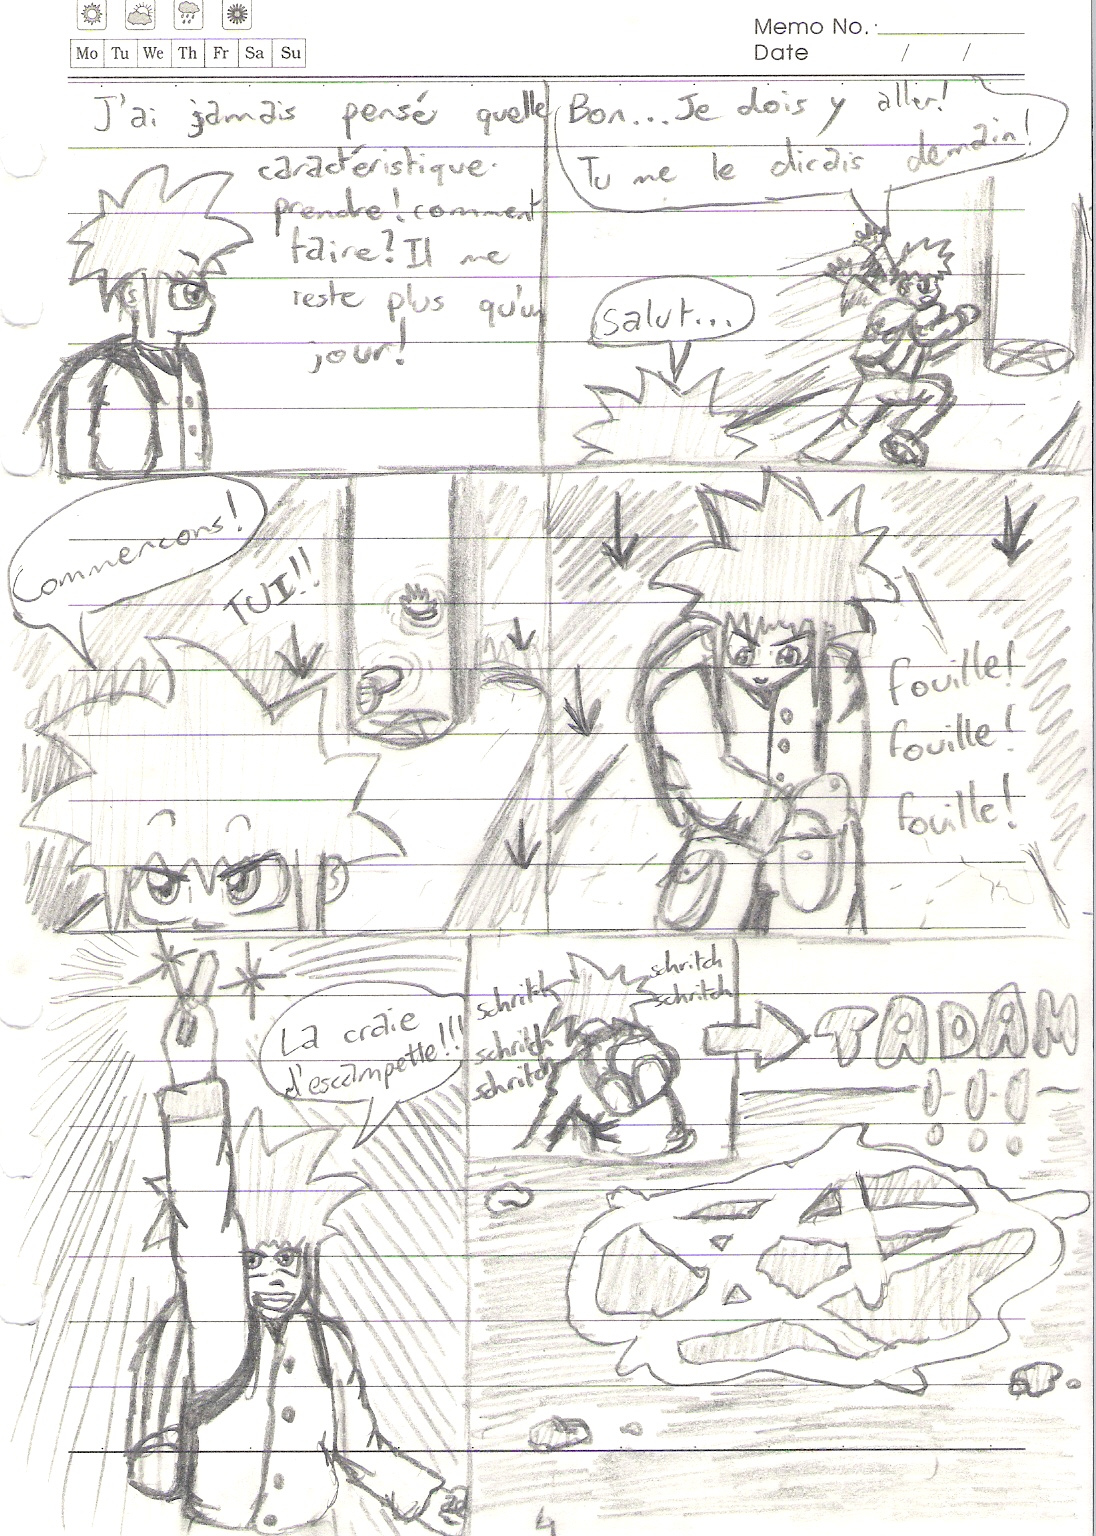 Memo No.:
Date / /
Mo Tu We Th Fr Sa Su
J'ai jamais pensé quelle
caractéristique
prendre! comment
faire? Il me
reste plus qu'un
jour!
Bon... Je dois y aller!
Tu me le dirais demain!
Salut...
Commencons!
TUI!!
fouille!
fouille!
fouille!
La craie
d'escampette!!!
schritch
schritch
schritch
schritch
schritch
TADAM
!!!
4